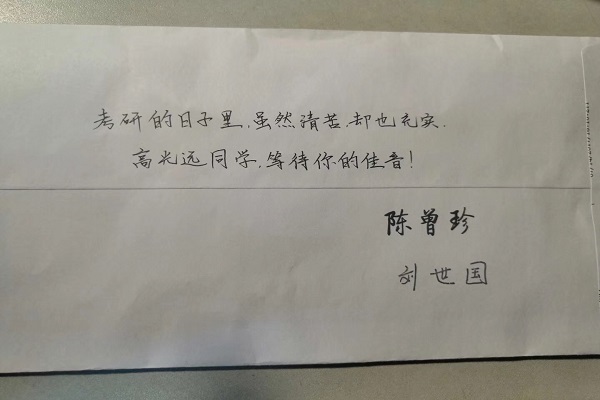 考研的日子里,虽然清苦,却也充实.
高光远同学,等待你的佳音!
陈曾珍
刘世国